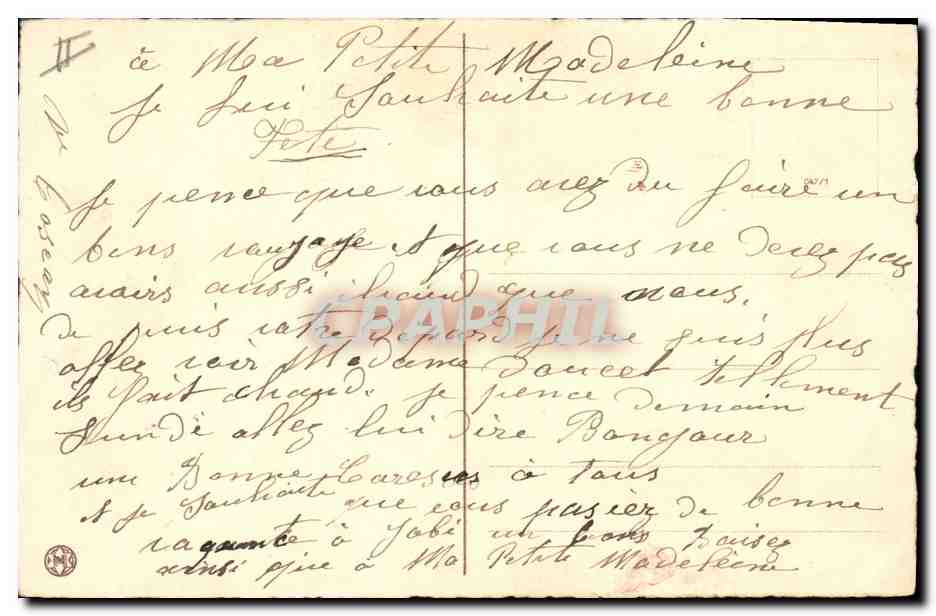 II
à Ma Petite Madeleine
Je lui Souhaite une bonne
Fete
Je pence que vous avez du faire un
bons vouyage et que vous ne devez pas
avoirs aussi chaud que nous.
de puis votre depard je ne suis plus
allez voir Madame Doucet tellement
ils fait chaud. Je pence demain
Lundi allez lui dire Bongour
une Bonne Caresses à tous
et je Souhaite que vous pasier de bonne
vagance à Jobi un bons Baisez
ainsi que à Ma Petite Madeleine
CPAPHIL